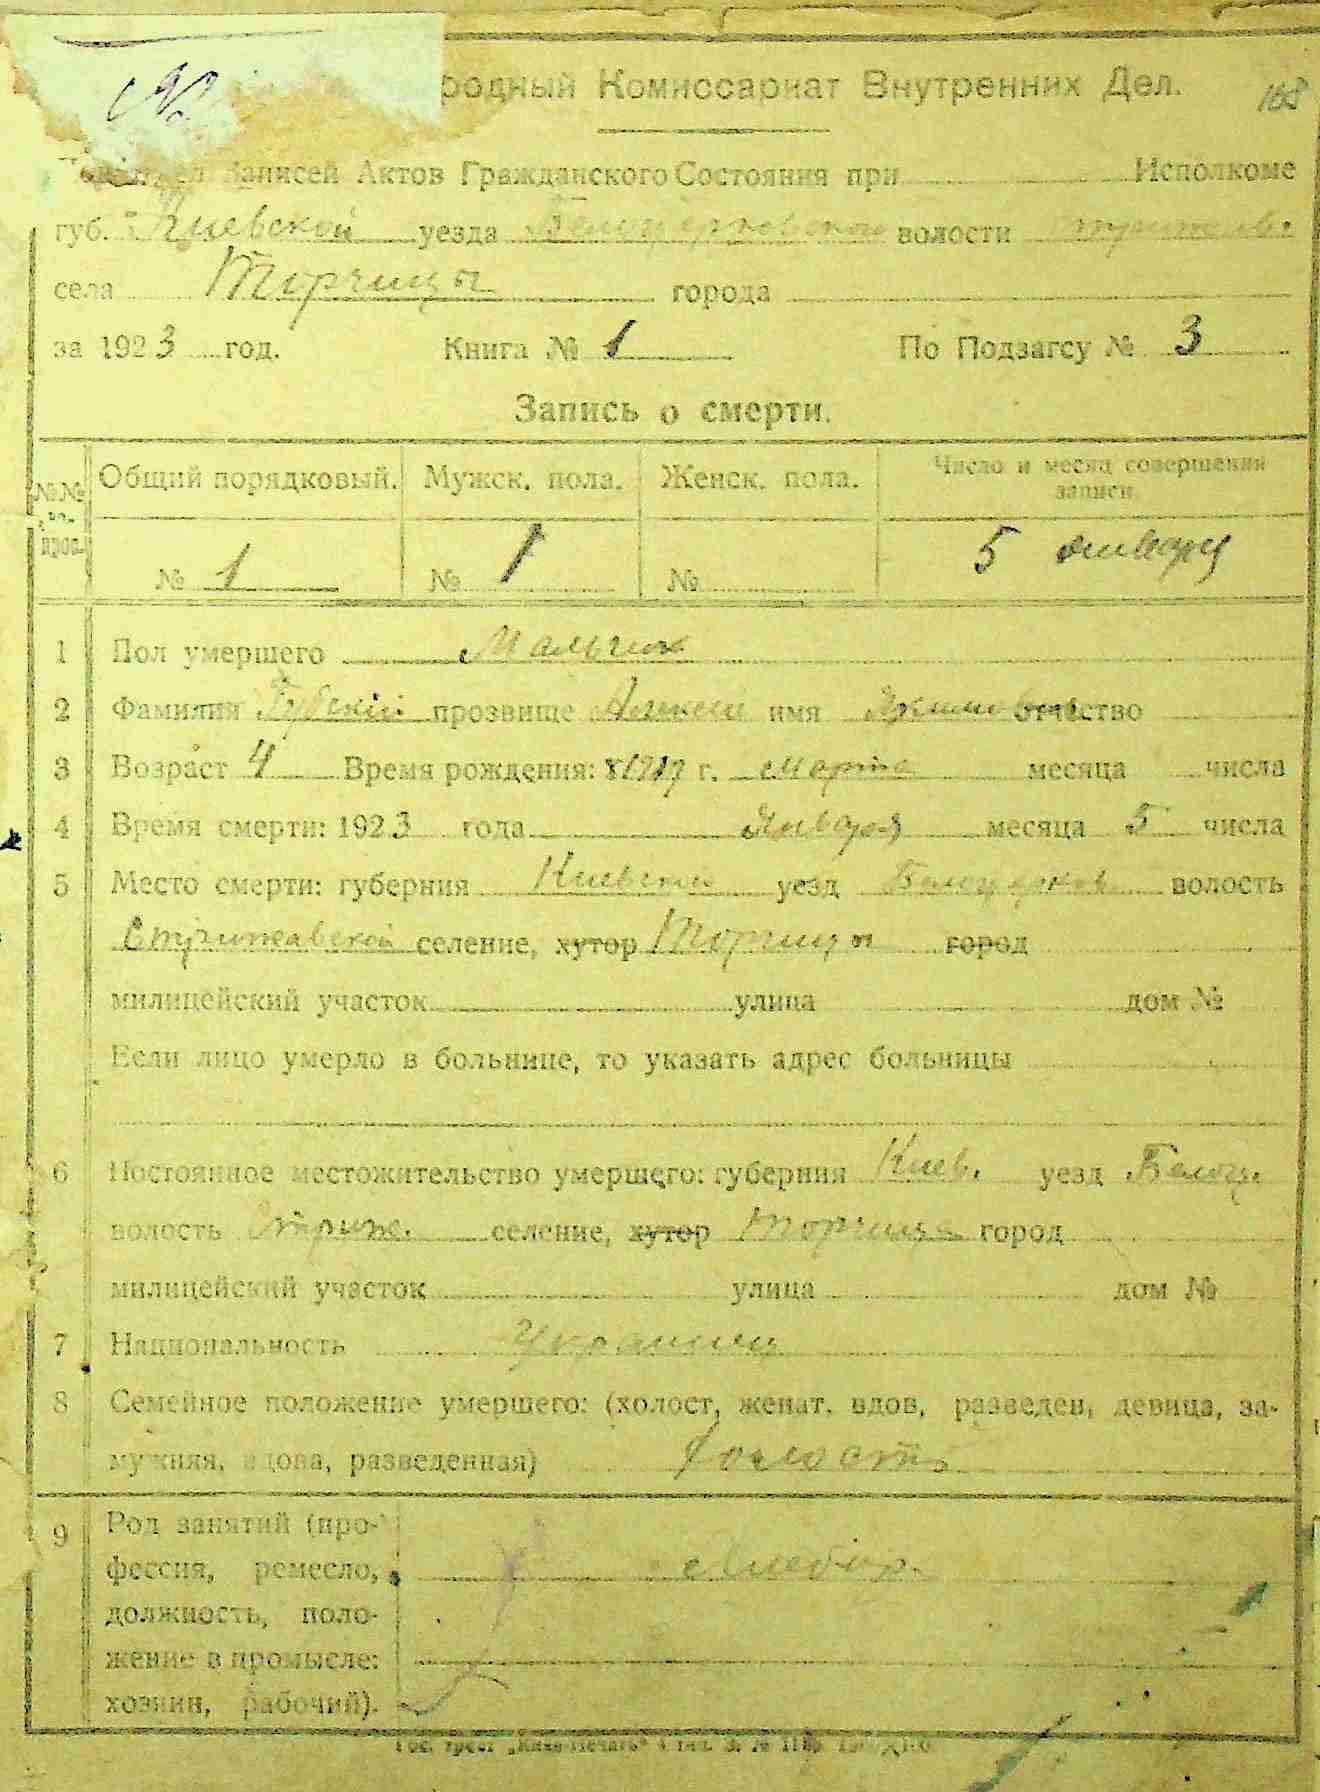 №
родный Комиссариат Внутренних Дел. 168
Записей Актов Гражданского Состояния при Исполкоме
губ. Киевской уезда Белоцерковской волости
села Торчицы города
за 1923 год. Книга № 1 По Подзагсу № 3
Запись о смерти.
№№ Общий порядковый. Мужск. пола. Женск. пола. Число и месяц совершения записи
№ 1 № 1 № 5 января
1 Пол умершего Мальчик
2 Фамилия Губскій прозвище Алексей имя отчество
3 Возраст 4 Время рождения: г. марта месяца числа
4 Время смерти: 1923 года Января месяца 5 числа
5 Место смерти: губерния Киевской уезд Белоцерков волость
Стрижавской селение, хутор Торчицы город
милицейский участок улица дом №
Если лицо умерло в больнице, то указать адрес больницы
6 Постоянное местожительство умершего: губерния Киев. уезд Белоц.
волость Стриж. селение, хутор Торчица город
милицейский участок улица дом №
7 Национальность Украинец
8 Семейное положение умершего: (холост, женат, вдов, разведен, девица, за-
мужняя, вдова, разведенная) Холостъ
9 Род занятий (про-
фессия, ремесло, Хлебор.
должность, поло-
жение в промысле:
хозяин, рабочий).
Гос. трест „Киев-Печать"